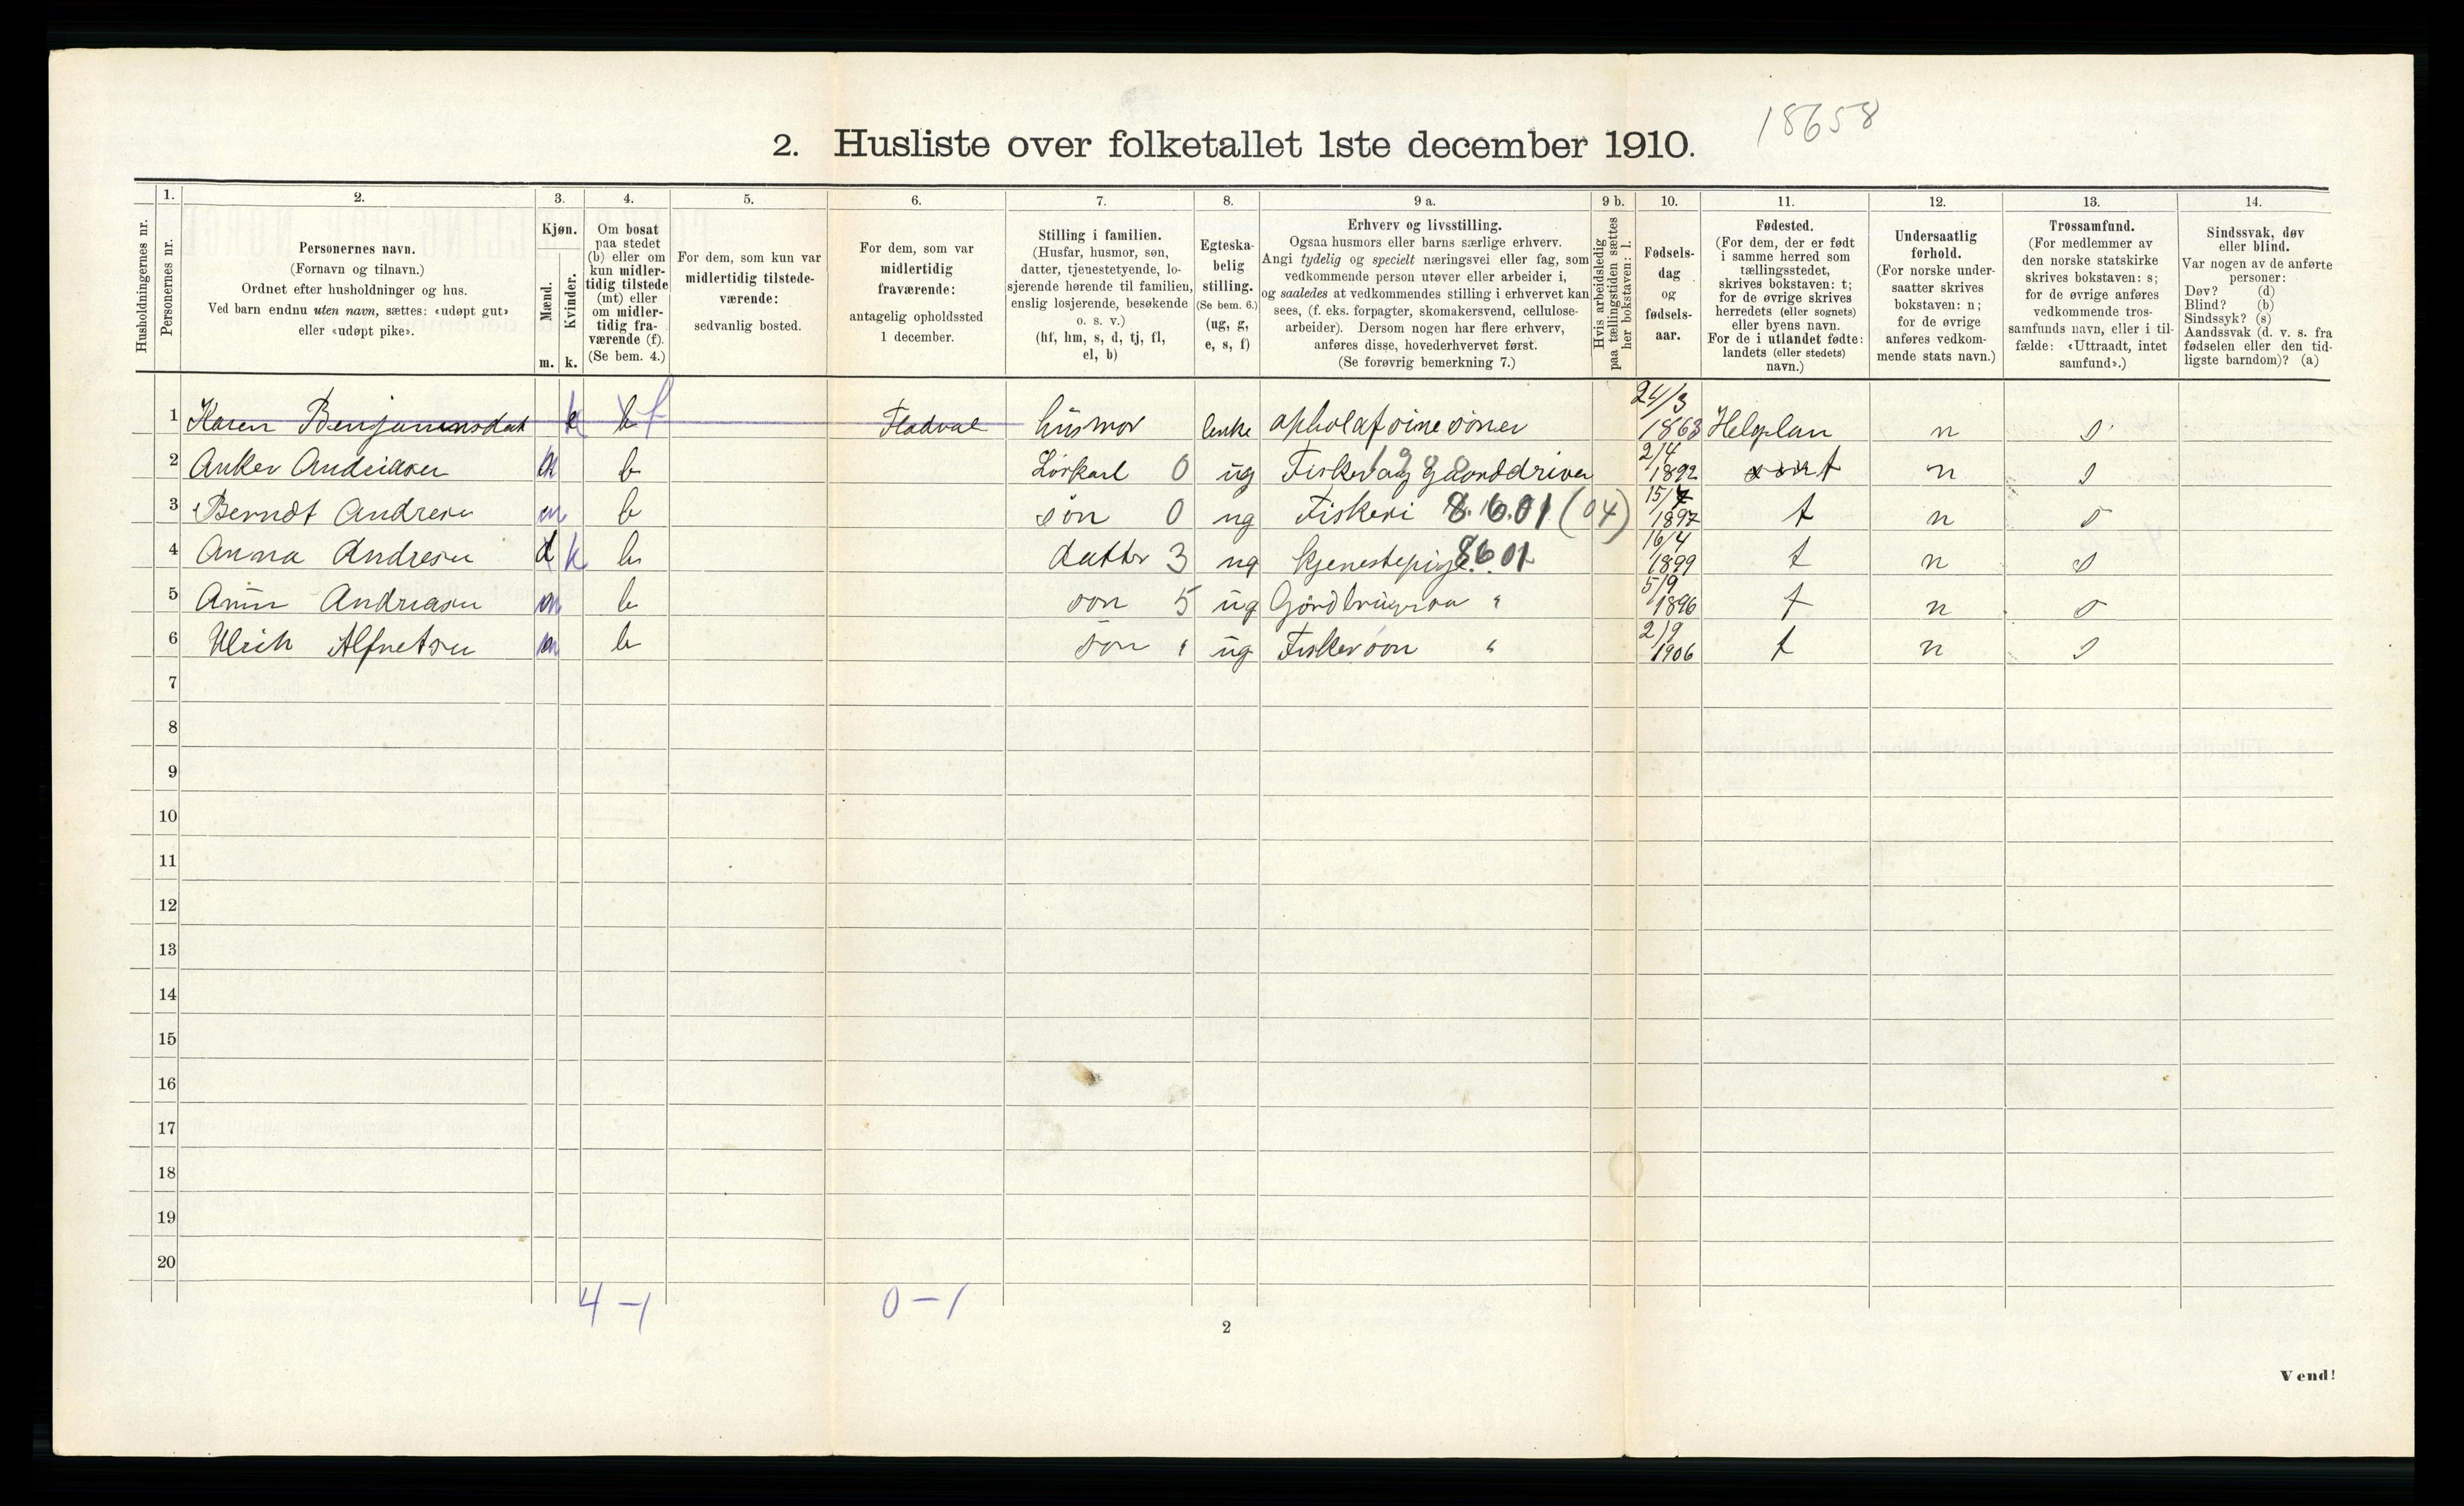 18658
2. Husliste over folketallet 1ste december 1910.
Husholdningernes nr.
1. Personernes nr.
2. Personernes navn. (Fornavn og tilnavn.) Ordnet efter husholdninger og hus. Ved barn endnu uten navn, sættes: «udøpt gut» eller «udøpt pike».
3. Kjøn. Mænd. m. Kvinder. k.
4. Om bosat paa stedet (b) eller om kun midlertidig tilstede (mt) eller om midlertidig fraværende (f). (Se bem. 4.)
5. For dem, som kun var midlertidig tilstedeværende: sedvanlig bosted.
6. For dem, som var midlertidig fraværende: antagelig opholdssted 1 december.
7. Stilling i familien. (Husfar, husmor, søn, datter, tjenestetyende, losjerende hørende til familien, enslig losjerende, besøkende o. s. v.) (hf, hm, s, d, tj, fl, el, b)
8. Egteskabelig stilling. (Se bem. 6.) (ug, g, e, s, f)
9 a. Erhverv og livsstilling. Ogsaa husmors eller barns særlige erhverv. Angi tydelig og specielt næringsvei eller fag, som vedkommende person utøver eller arbeider i, og saaledes at vedkommendes stilling i erhvervet kan sees, (f. eks. forpagter, skomakersvend, cellulosearbeider). Dersom nogen har flere erhverv, anføres disse, hovederhvervet først. (Se forøvrig bemerkning 7.)
9 b. Hvis arbeidsledig paa tællingstiden sættes her bokstaven: l.
10. Fødselsdag og fødselsaar.
11. Fødested. (For dem, der er født i samme herred som tællingsstedet, skrives bokstaven: t; for de øvrige skrives herredets (eller sognets) eller byens navn. For de i utlandet fødte: landets (eller stedets) navn.)
12. Undersaatlig forhold. (For norske undersaatter skrives bokstaven: n; for de øvrige anføres vedkommende stats navn.)
13. Trossamfund. (For medlemmer av den norske statskirke skrives bokstaven: s; for de øvrige anføres vedkommende trossamfunds navn, eller i tilfælde: «Uttraadt, intet samfund».)
14. Sindssvak, døv eller blind. Var nogen av de anførte personer: Døv? (d) Blind? (b) Sindssyk? (s) Aandssvak (d. v. s. fra fødselen eller den tidligste barndom)? (a)
1 Karen Benjaminsdat k b f Fladval husmor enke 24/3 1863 n s
2 Anker Andriasen m b 0 ug Fisker og 2/4 1892 t n s
3 Berndt Andresen m b søn 0 ug Fiskeri 8.6.01 (04) 15/7 1897 t n s
4 Anna Andresen d k b datter 3 ug tjenestepige 8601 16/4 1899 t n s
5 Andriasen m b søn 5 ug " 5/9 1896 t n s
6 Ulrik m b søn " ug Fisker søn " 2/9 1906 t n s
7
8
9
10
11
12
13
14
15
16
17
18
19
20
4 - 1 0 - 1
2
Vend!